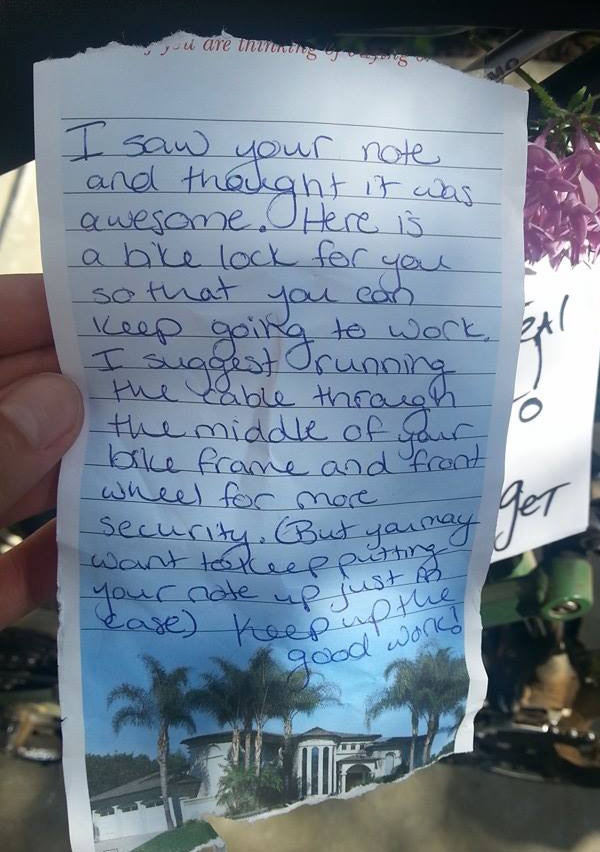 you are thinking of buying or
I saw your note
and thought it was
awesome. Here is
a bike lock for you
so that you can
keep going to work.
I suggest running
the cable through
the middle of your
bike frame and front
wheel for more
security. (But you may
want to keep putting
your note up just in
case) Keep up the
good work!
MO
EAL
TO
get